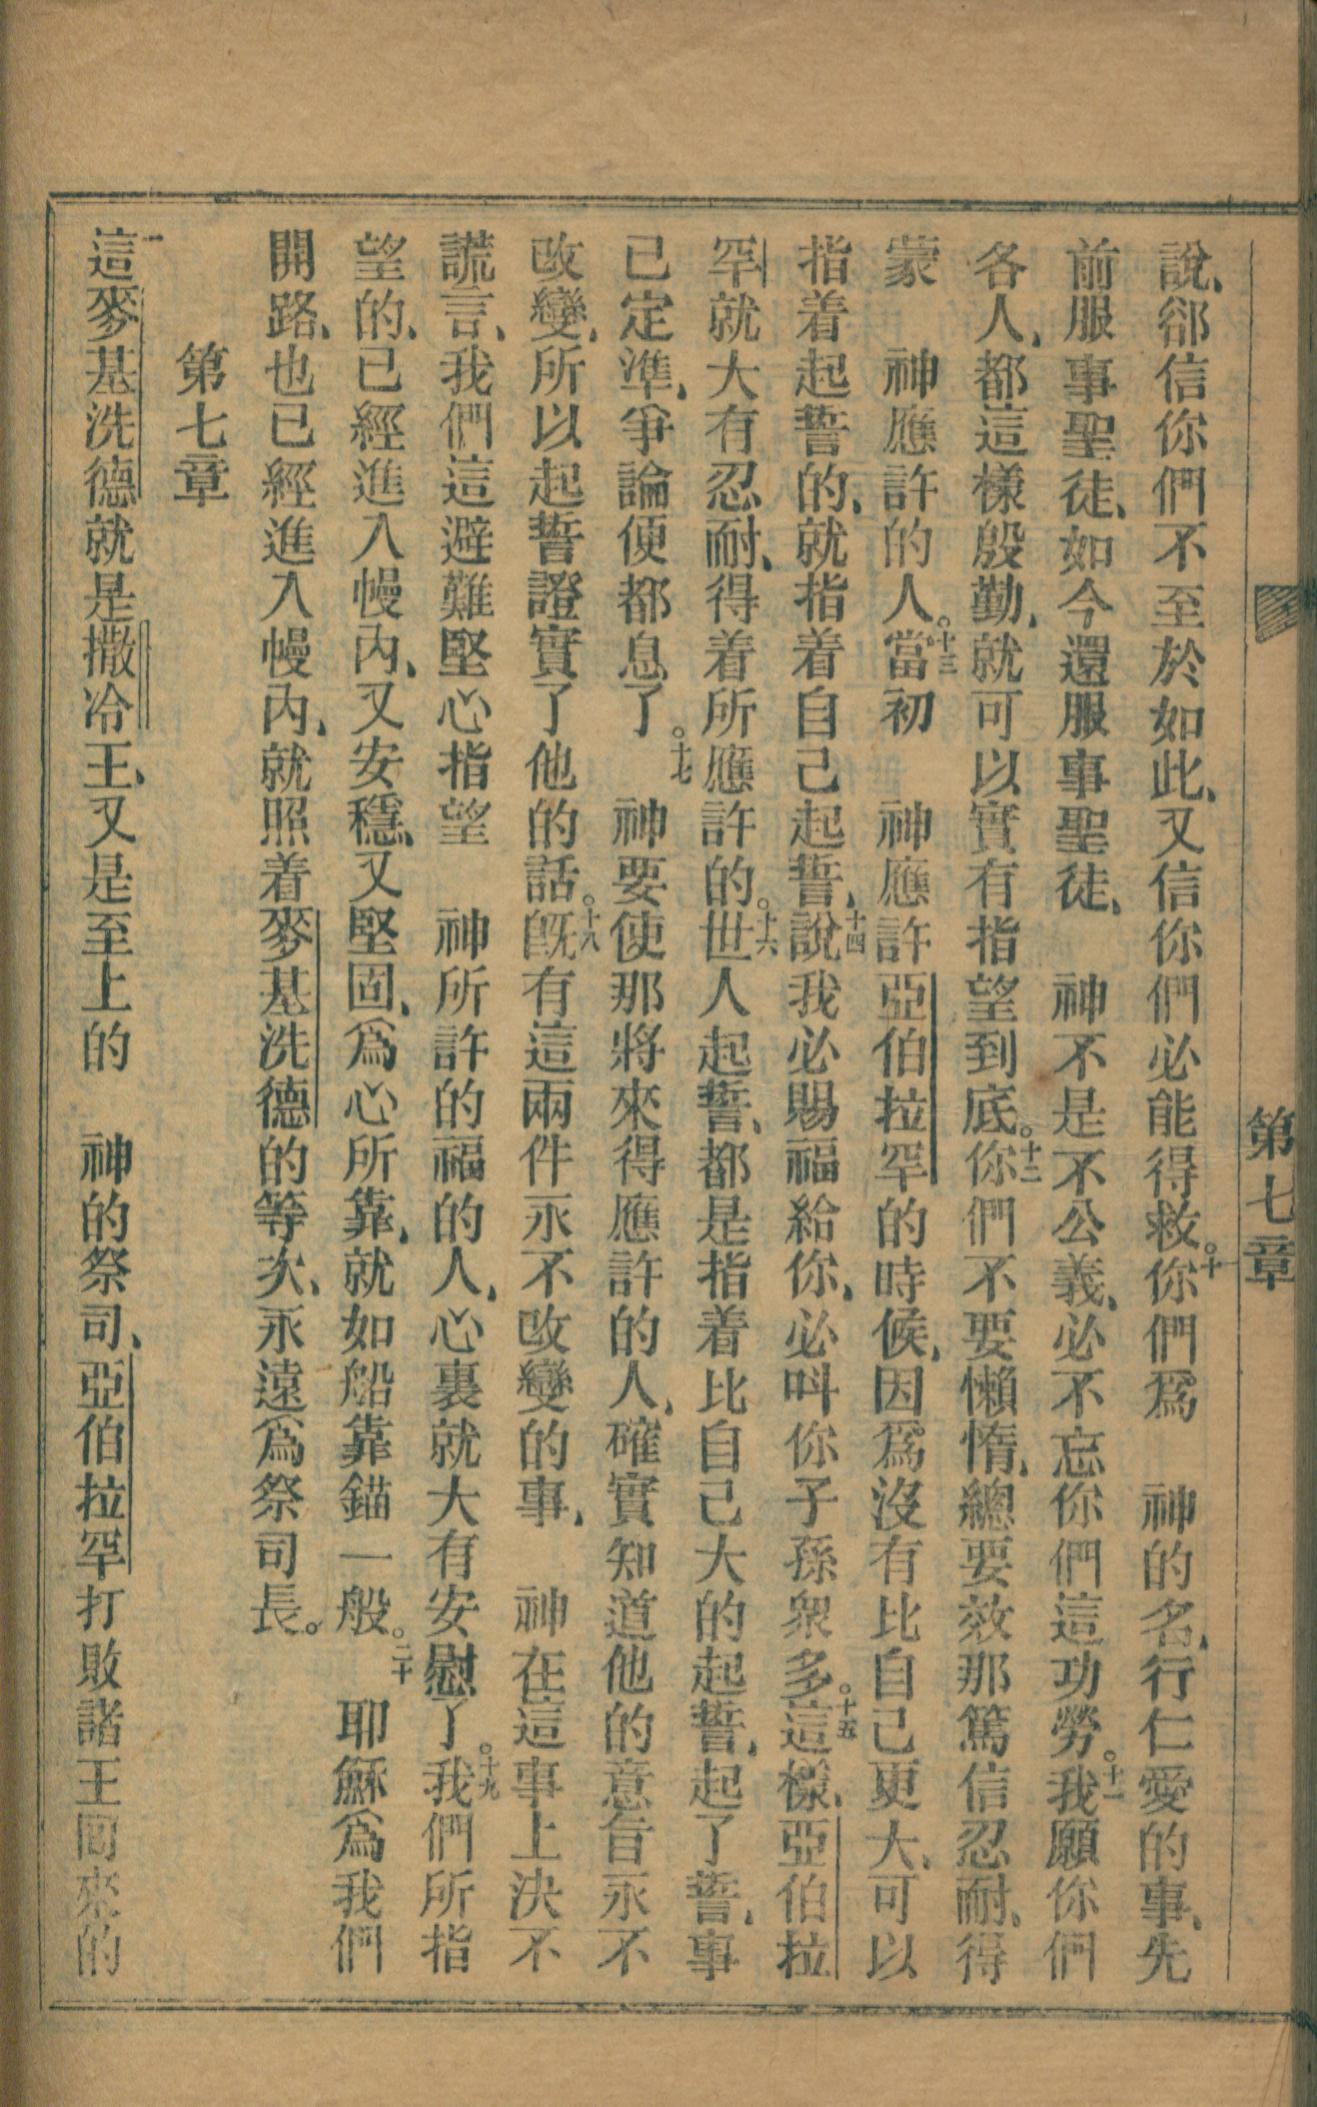 第七章
說、卻信你們不至於如此、又信你們必能得救。十你們爲　神的名、行仁愛的事、先
前服事聖徒、如今還服事聖徒、　神不是不公義、必不忘你們這功勞。十一我願你們
各人、都這樣殷勤、就可以實有指望到底。十二你們不要懶惰、總要效那篤信忍耐、得
蒙　神應許的人。十三當初　神應許亞伯拉罕的時候、因爲沒有比自己更大、可以
指着起誓的、就指着自己起誓、十四說我必賜福給你、必呌你子孫衆多。十五這樣、亞伯拉
罕就大有忍耐、得着所應許的。十六世人起誓、都是指着比自己大的起誓、起了誓、事
已定準、爭論便都息了。十七　神要使那將來得應許的人、確實知道他的意旨永不
改變、所以起誓證實了他的話。十八既有這兩件永不改變的事、　神在這事上決不
謊言、我們這避難堅心指望　神所許的福的人、心裏就大有安慰了。十九我們所指
望的、已經進入幔內、又安穩、又堅固、爲心所靠、就如船靠錨一般。二十　耶穌爲我們
開路、也已經進入幔內、就照着麥基洗德的等次、永遠爲祭司長。
第七章
一這麥基洗德就是撒冷王、又是至上的　神的祭司、亞伯拉罕打敗諸王回來的